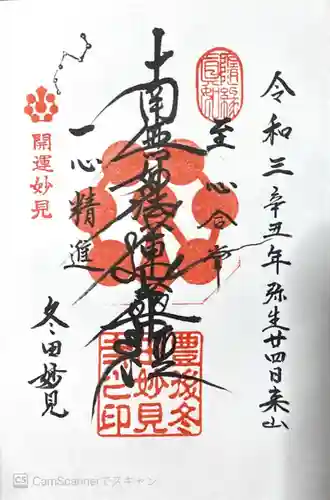 令和三辛丑年弥生廿四日来山
至心合掌
南無妙法蓮華経
一心精進
開運妙見
冬田妙見
豊後冬
田妙見
CS CamScannerでスキャン